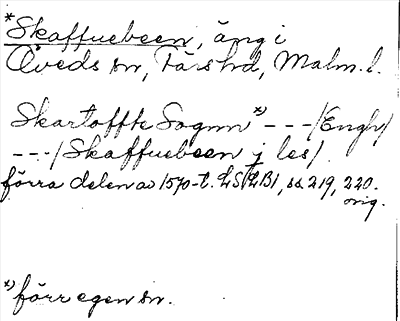 *Skaffuebeen, äng i
Öveds sn, Färs hd, Malm. l.
Skartoffte Sognn *) - - - /Engh/
- - - /Skaffuebeen j les/
förra delen av 1570-t. LSLB1, ss. 219, 220.
orig.
*) förr egen sn.